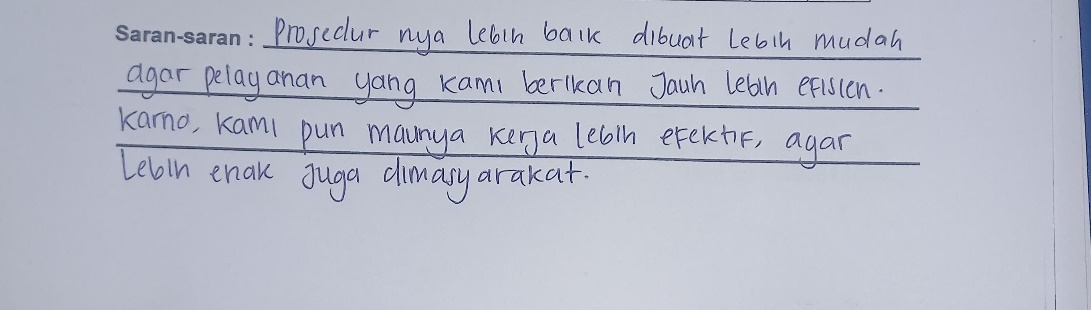 Saran-saran : Prosedur nya lebih baik dibuat lebih mudah
agar pelayanan yang kami berikan jauh lebih efisien.
karno, kami pun maunya kerja lebih efektif, agar
lebih enak juga dimasyarakat.